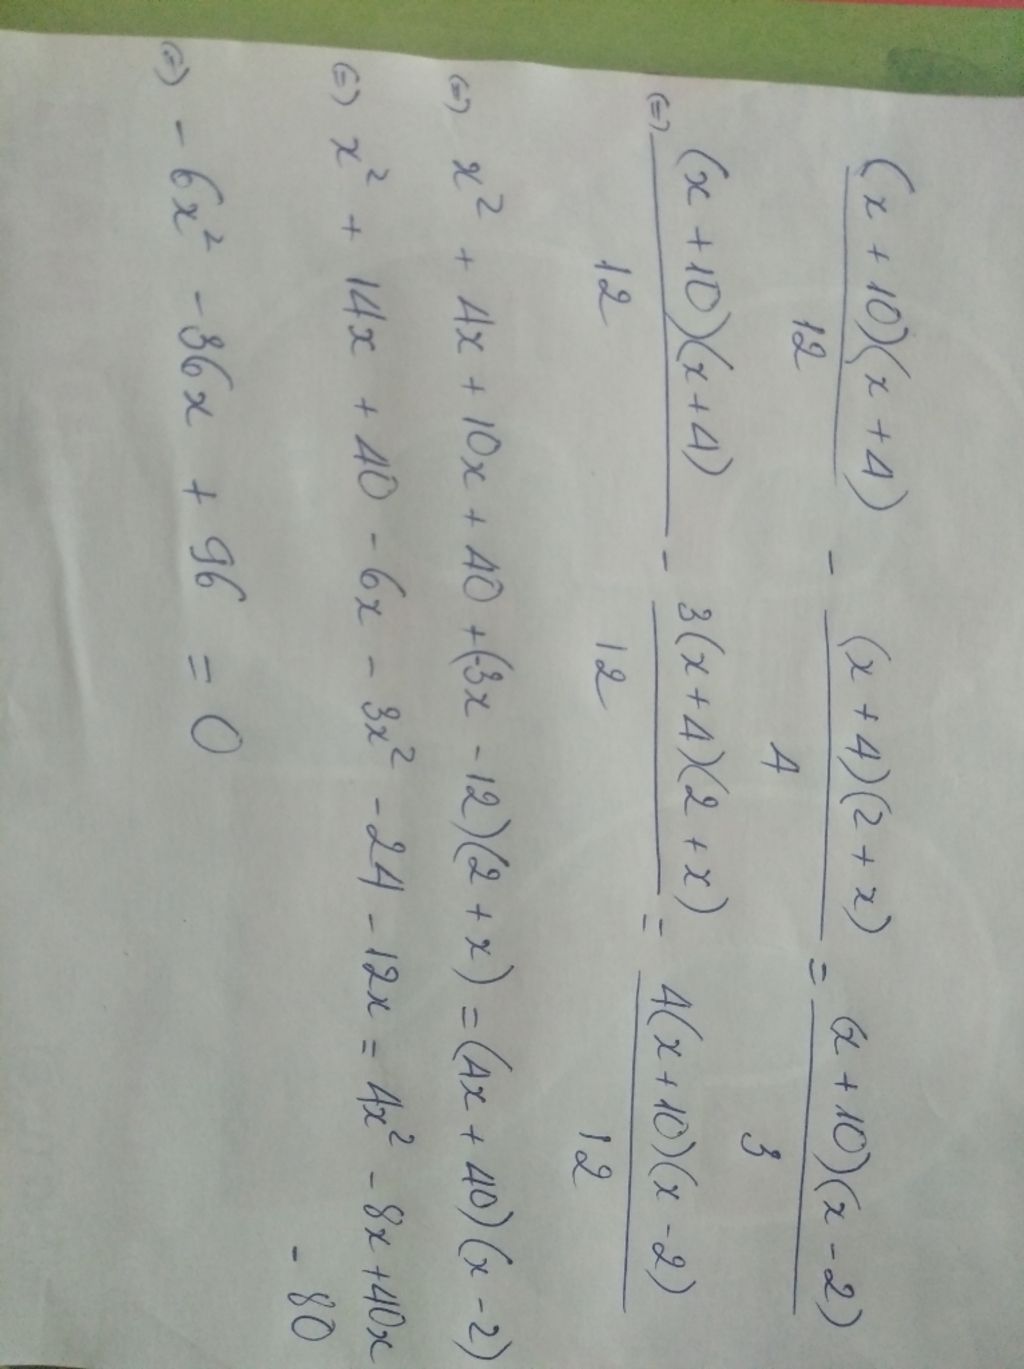 (x + 10)(x + 4)/12 - (x + 4)(2 + x)/4 = (x + 10)(x - 2)/3
(=) (x + 10)(x + 4)/12 - 3(x + 4)(2 + x)/12 = 4(x + 10)(x - 2)/12
(=) x² + 4x + 10x + 40 + (-3x - 12)(2 + x) = (4x + 40)(x - 2)
(=) x² + 14x + 40 - 6x - 3x² - 24 - 12x = 4x² - 8x + 40x
- 80
(=) - 6x² - 36x + 96 = 0